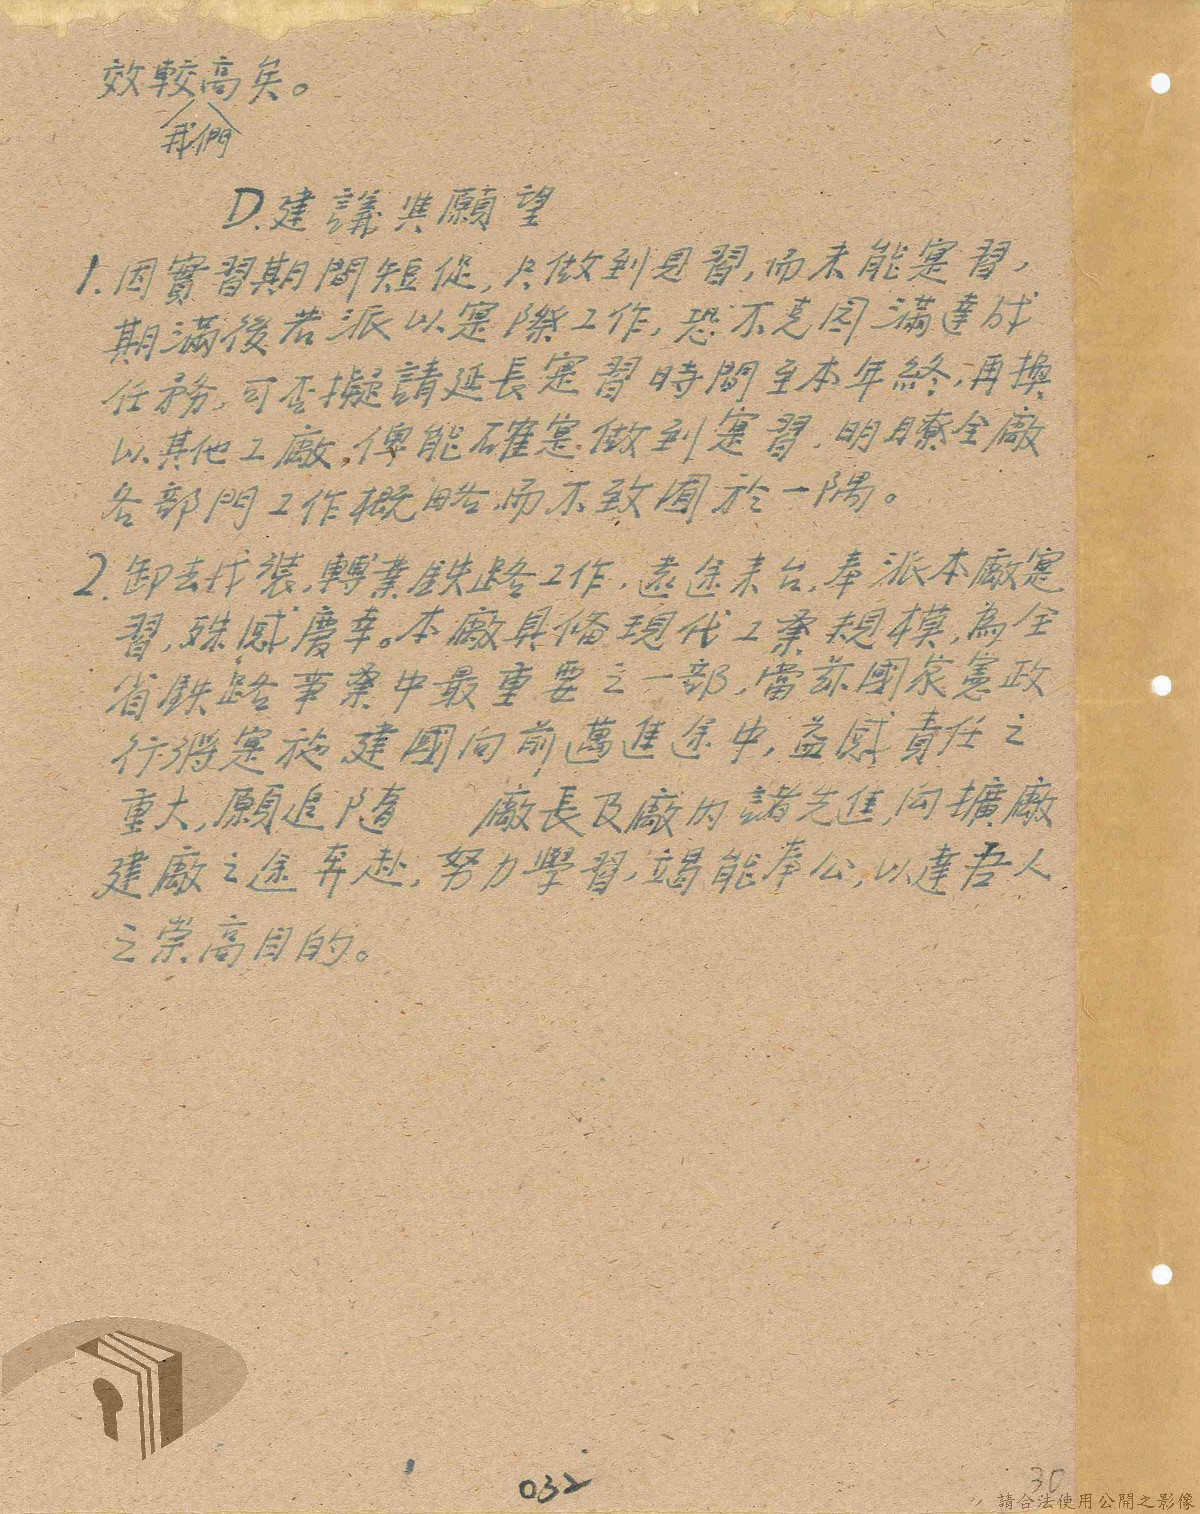 效較高矣。
我們
D.建議與願望
1.因實習期間短促,只做到見習,而未能寔習,
期滿後若派以寔際工作,恐不克图滿達成
任務,可否擬請延長寔習時間至本年終,再換
以其他工廠,俾能確寔做到寔習,明瞭全廠
各部門工作概略,而不致囿於一隅。
2.卸去戎裝,轉業鉄路工作,遠途来台,奉派本廠寔
習,殊感慶幸。本廠具備現代工業規模,為全
省鉄路事業中最重要之一部,當茲國家憲政
行將寔施,建國向前邁進途中,益感責任之
重大,願追隨 廠長及廠内諸先進,向擴廠
建廠之途奔赴,努力學習,竭能奉公,以達吾人
之崇高目的。
032
30
請合法使用公開之影像